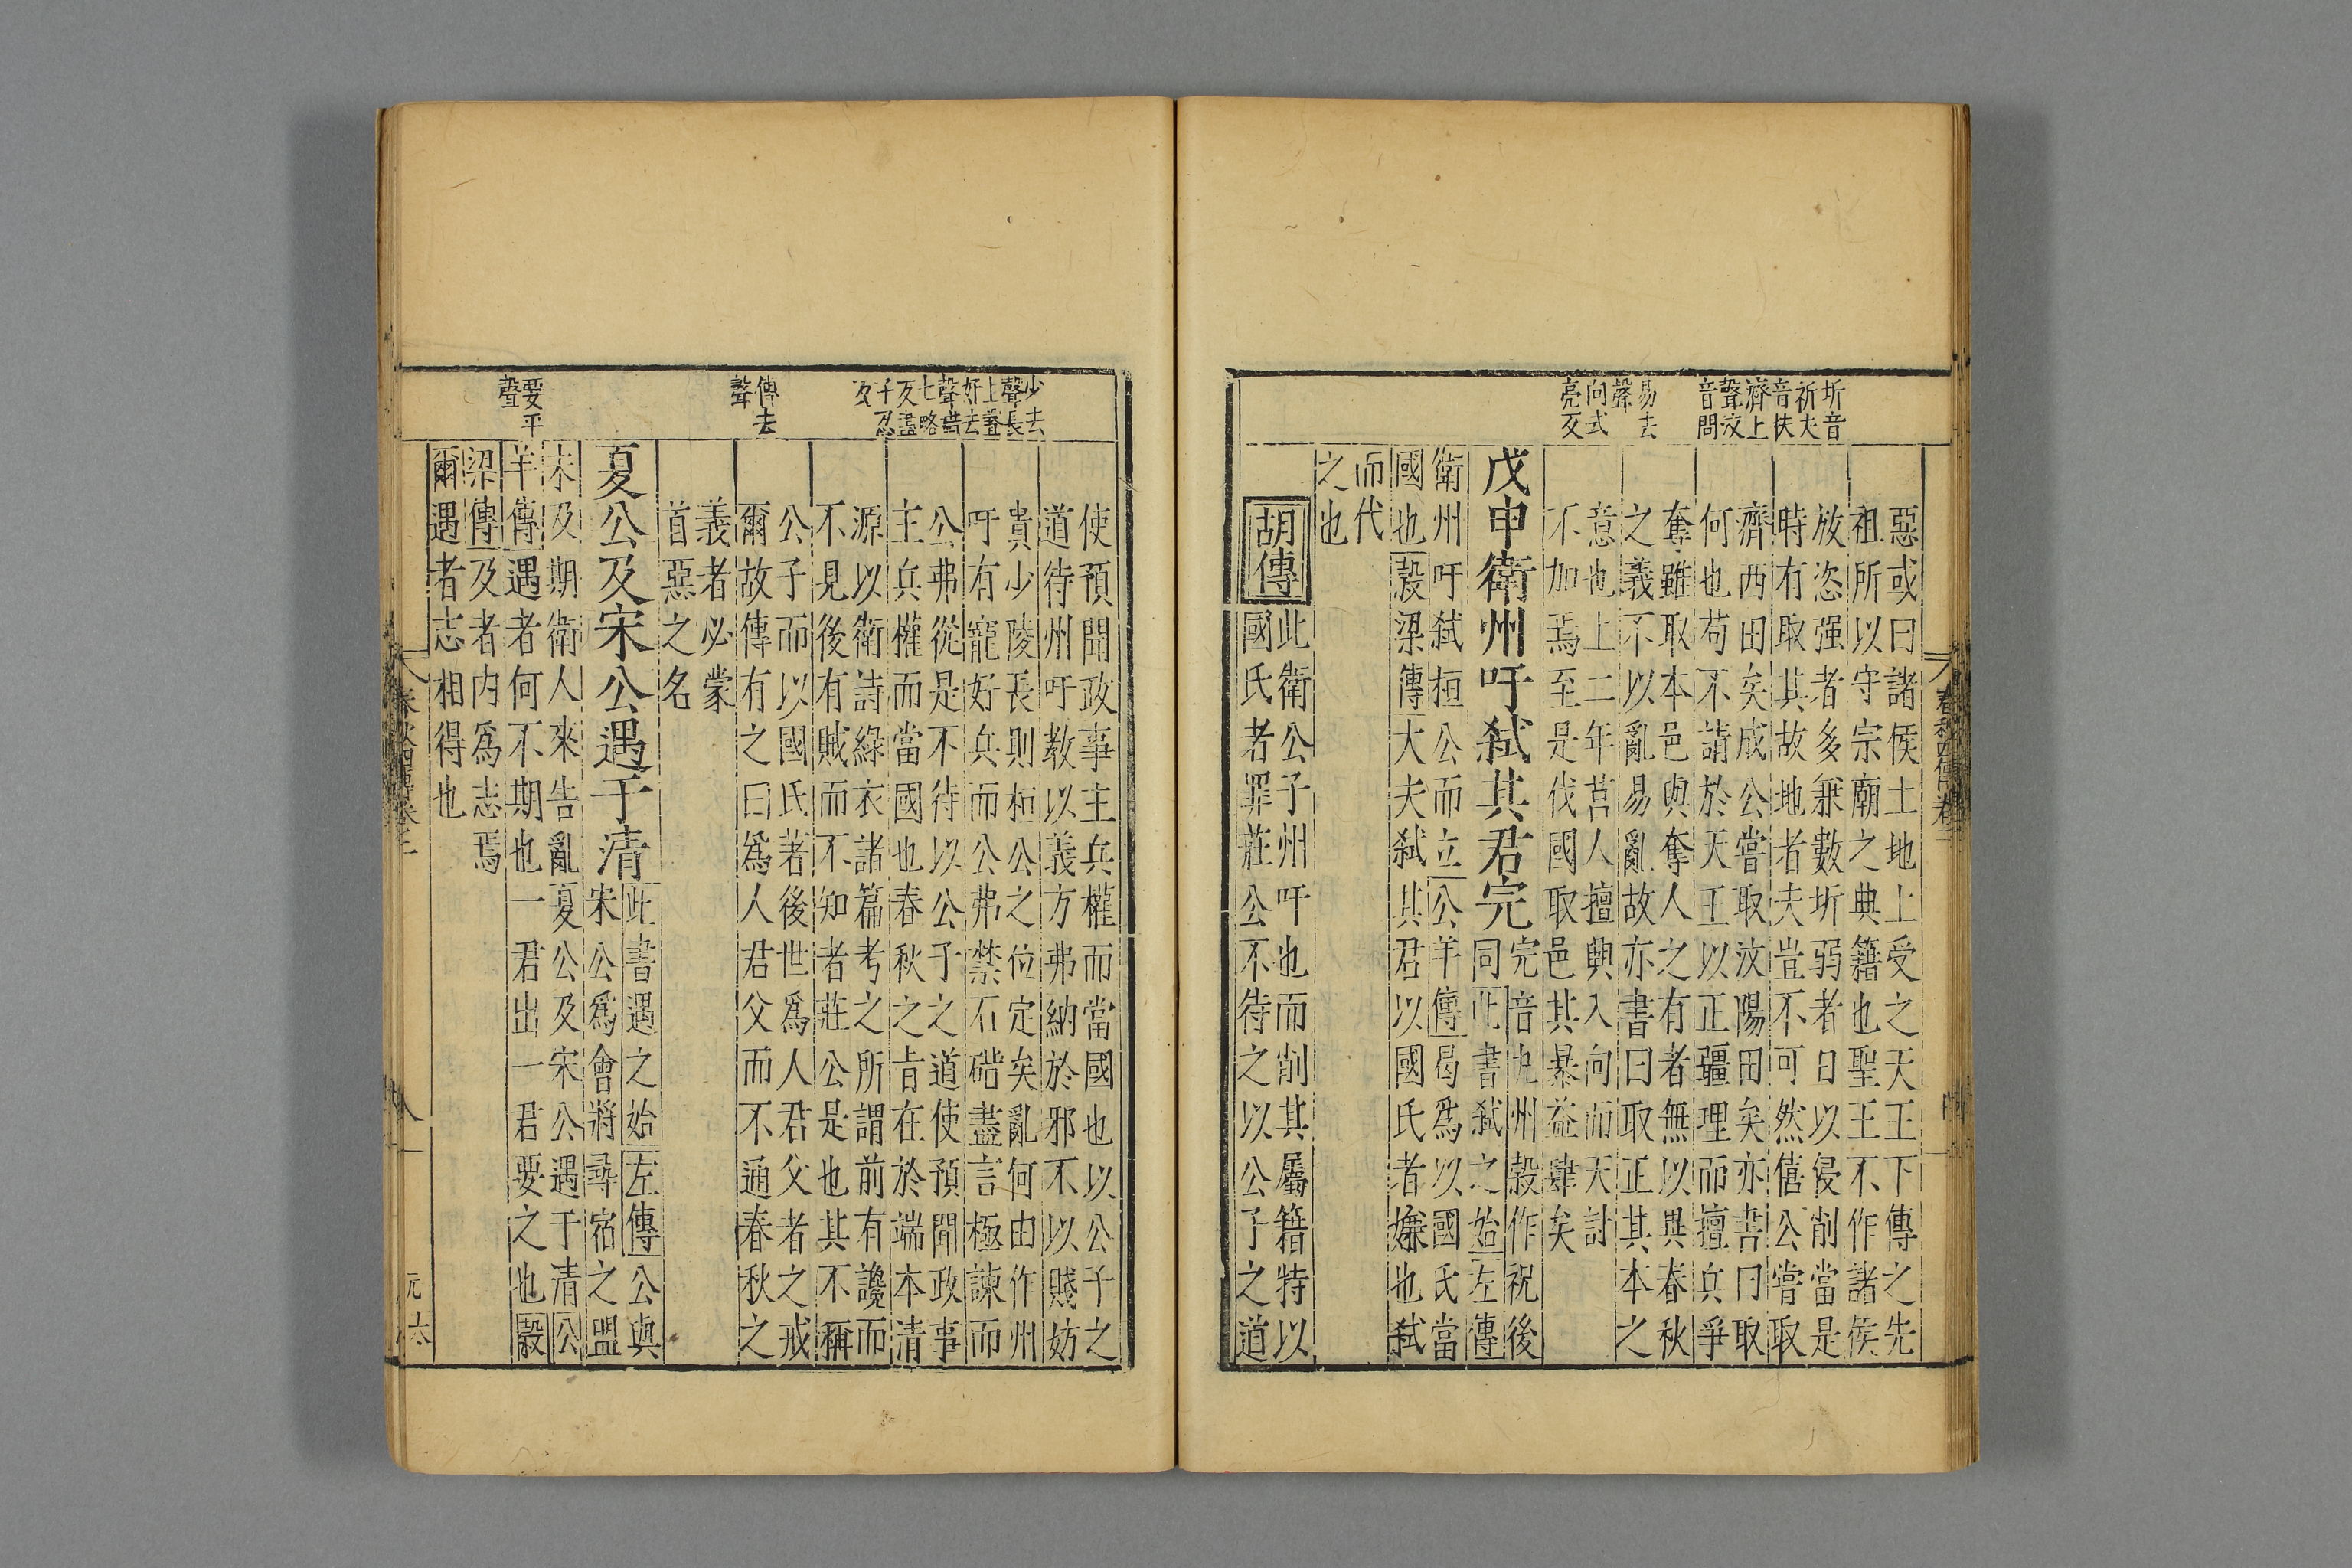 圻音
祈夫
音扶
濟上
聲汶
音問
易去
聲
向式
亮反
惡或曰諸侯土地上受之天王下傳之先
祖所以守宗廟之典籍也聖王不作諸侯
放恣强者多兼數圻弱者日以侵削當是
時有取其故地者夫豈不可然僖公嘗取
濟西田矣成公嘗取汶陽田矣亦書曰取
何也苟不請於天王以正疆理而擅兵爭
奪雖取本邑與奪人之有者無以異春秋
之義不以亂易亂故亦書曰取正其本之
意也上二年莒人擅興入向而天討
不加焉至是伐國取邑其暴益肆矣
戊申衛州吁弑其君完
完音丸州穀作祝後
同此書弑之始左傳
衛州吁弑桓公而立公羊傳曷爲以國氏當
國也穀梁傳大夫弑其君以國氏者嫌也弑
而代
之也
胡傳
此衛公子州吁也而削其屬籍特以
國氏者罪莊公不待之以公子之道
少去
聲長
上聲
好去
聲碏
七略
反盡
千忍
反
傳去
聲
要平
聲
使預聞政事主兵權而當國也以公子之
道待州吁教以義方弗納於邪不以賤妨
貴少陵長則桓公之位定矣亂何由作州
吁有寵好兵而公弗禁石碏盡言極諫而
公弗從是不待以公子之道使預聞政事
主兵權而當國也春秋之旨在於端本清
源以衛詩綠衣諸篇考之所謂前有讒而
不見後有賊而不知者莊公是也其不稱
公子而以國氏若後世爲人君父者之戒
爾故傳有之曰爲人君父而不通春秋之
義者必蒙
首惡之名
夏公及宋公遇于清
此書遇之始左傳公與
宋公爲會將尋宿之盟
未及期衛人來告亂夏公及宋公遇于清公
羊傳遇者何不期也一君出一君要之也穀
梁傳及者内爲志焉
爾遇者志相得也